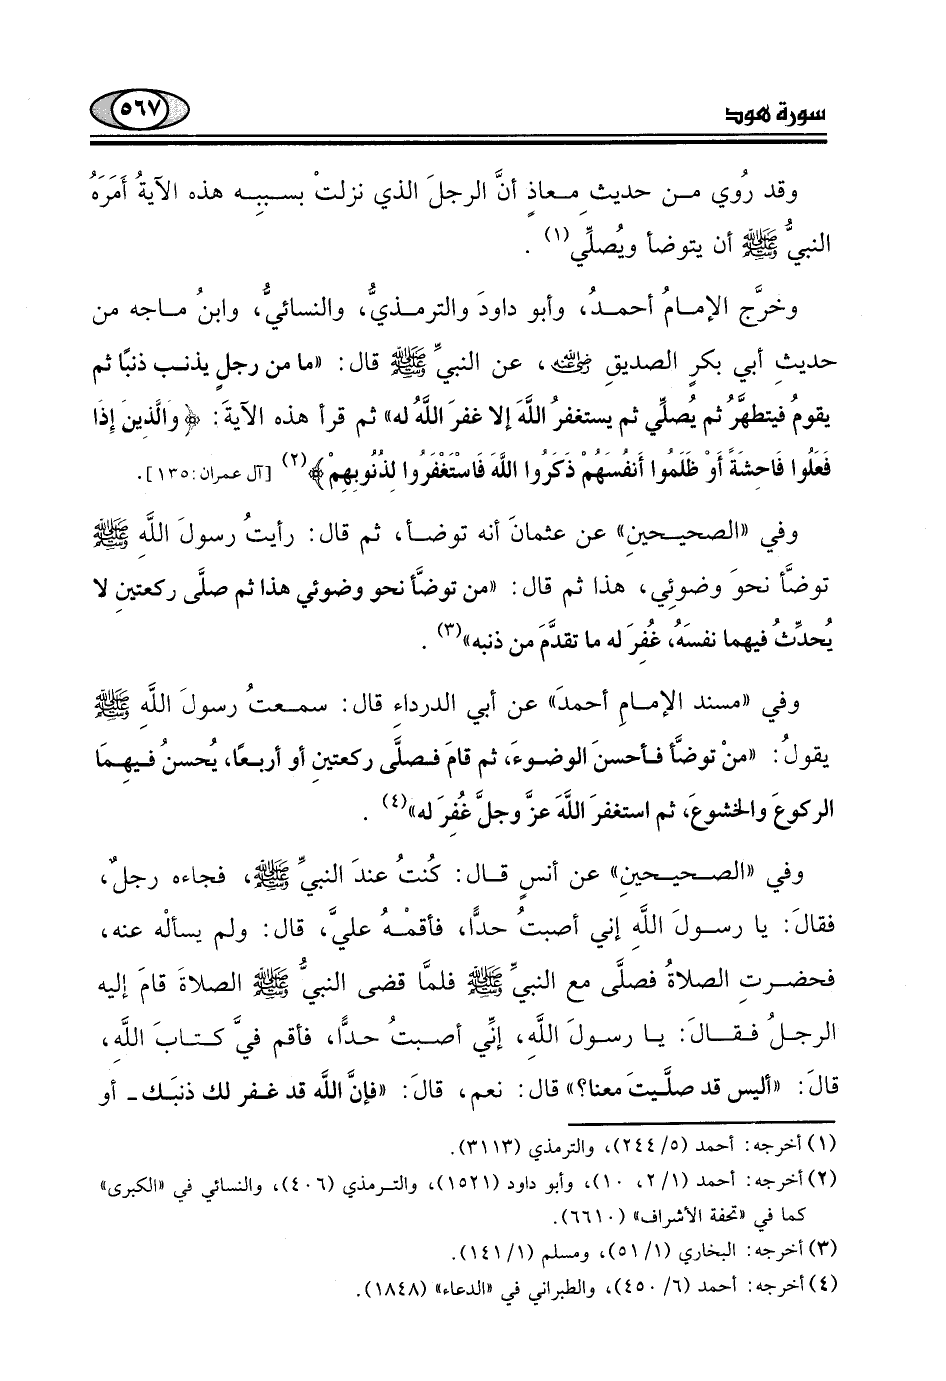 سورة هود
٥٦٧
وقد رُوي من حديثِ معاذٍ أنَّ الرجلَ الذي نزلتْ بسببِه هذه الآيةُ أَمَرَهُ
النبيُّ ﷺ أن يتوضأ ويُصلِّي(١) .
وخرَّج الإمامُ أحمدُ، وأبو داودَ والترمذيُّ، والنسائيُّ، وابنُ ماجه من
حديثِ أبي بكرٍ الصديقِ رضي الله عنه، عن النبيِّ ﷺ قال: «ما من رجلٍ يذنب ذنبًا ثم
يقومُ فيتطهَّرُ ثم يُصلِّي ثم يستغفرُ اللَّهَ إلا غفرَ اللَّهُ له» ثم قرأ هذه الآيةَ: ﴿وَالَّذِينَ إِذَا
فَعَلُوا فَاحِشَةً أَوْ ظَلَمُوا أَنفُسَهُمْ ذَكَرُوا اللَّهَ فَاسْتَغْفَرُوا لِذُنُوبِهِمْ﴾(٢) [آل عمران: ١٣٥].
وفي «الصحيحينِ» عن عثمانَ أنه توضأ، ثم قال: رأيتُ رسولَ اللَّهِ ﷺ
توضَّأ نحوَ وضوئِي، هذا ثم قال: «من توضَّأ نحو وضوئي هذا ثم صلَّى ركعتينِ لا
يُحدِّثُ فيهما نفسَهُ، غُفِرَ له ما تقدَّمَ من ذنبه»(٣) .
وفي «مسند الإمامِ أحمدَ» عن أبي الدرداءِ قال: سمعتُ رسولَ اللَّهِ ﷺ
يقولُ: «منْ توضَّأ فأحسنَ الوضوءَ، ثم قامَ فصلَّى ركعتينِ أو أربعًا، يُحسنُ فيهِمَا
الركوعَ والخشوعَ، ثم استغفرَ اللَّهَ عزَّ وجلَّ غُفِرَ له»(٤) .
وفي «الصحيحينِ» عن أنسٍ قال: كُنتُ عندَ النبيِّ ﷺ، فجاءه رجلٌ،
فقالَ: يا رسولَ اللَّهِ إني أصبتُ حدًّا، فأقمْهُ عليَّ، قال: ولم يسألْه عنه،
فحضرتِ الصلاةُ فصلَّى مع النبيِّ ﷺ فلمَّا قضى النبيُّ ﷺ الصلاةَ قامَ إليه
الرجلُ فقالَ: يا رسولَ اللَّهِ، إنِّي أصبتُ حدًّا، فأقم فيَّ كتابَ اللَّهِ،
قالَ: «أليس قد صلَّيتَ معنا؟» قال: نعم، قالَ: «فإنَّ اللَّهَ قد غفر لك ذنبَك - أو
(١) أخرجه: أحمد (٥/ ٢٤٤)، والترمذي (٣١١٣).
(٢) أخرجه: أحمد (١/ ٢، ١٠)، وأبو داود (١٥٢١)، والترمذي (٤٠٦)، والنسائي في «الكبرى»
كما في «تحفة الأشراف» (٦٦١٠).
(٣) أخرجه: البخاري (١/ ٥١)، ومسلم (١/ ١٤١).
(٤) أخرجه: أحمد (٦/ ٤٥٠)، والطبراني في «الدعاء» (١٨٤٨).